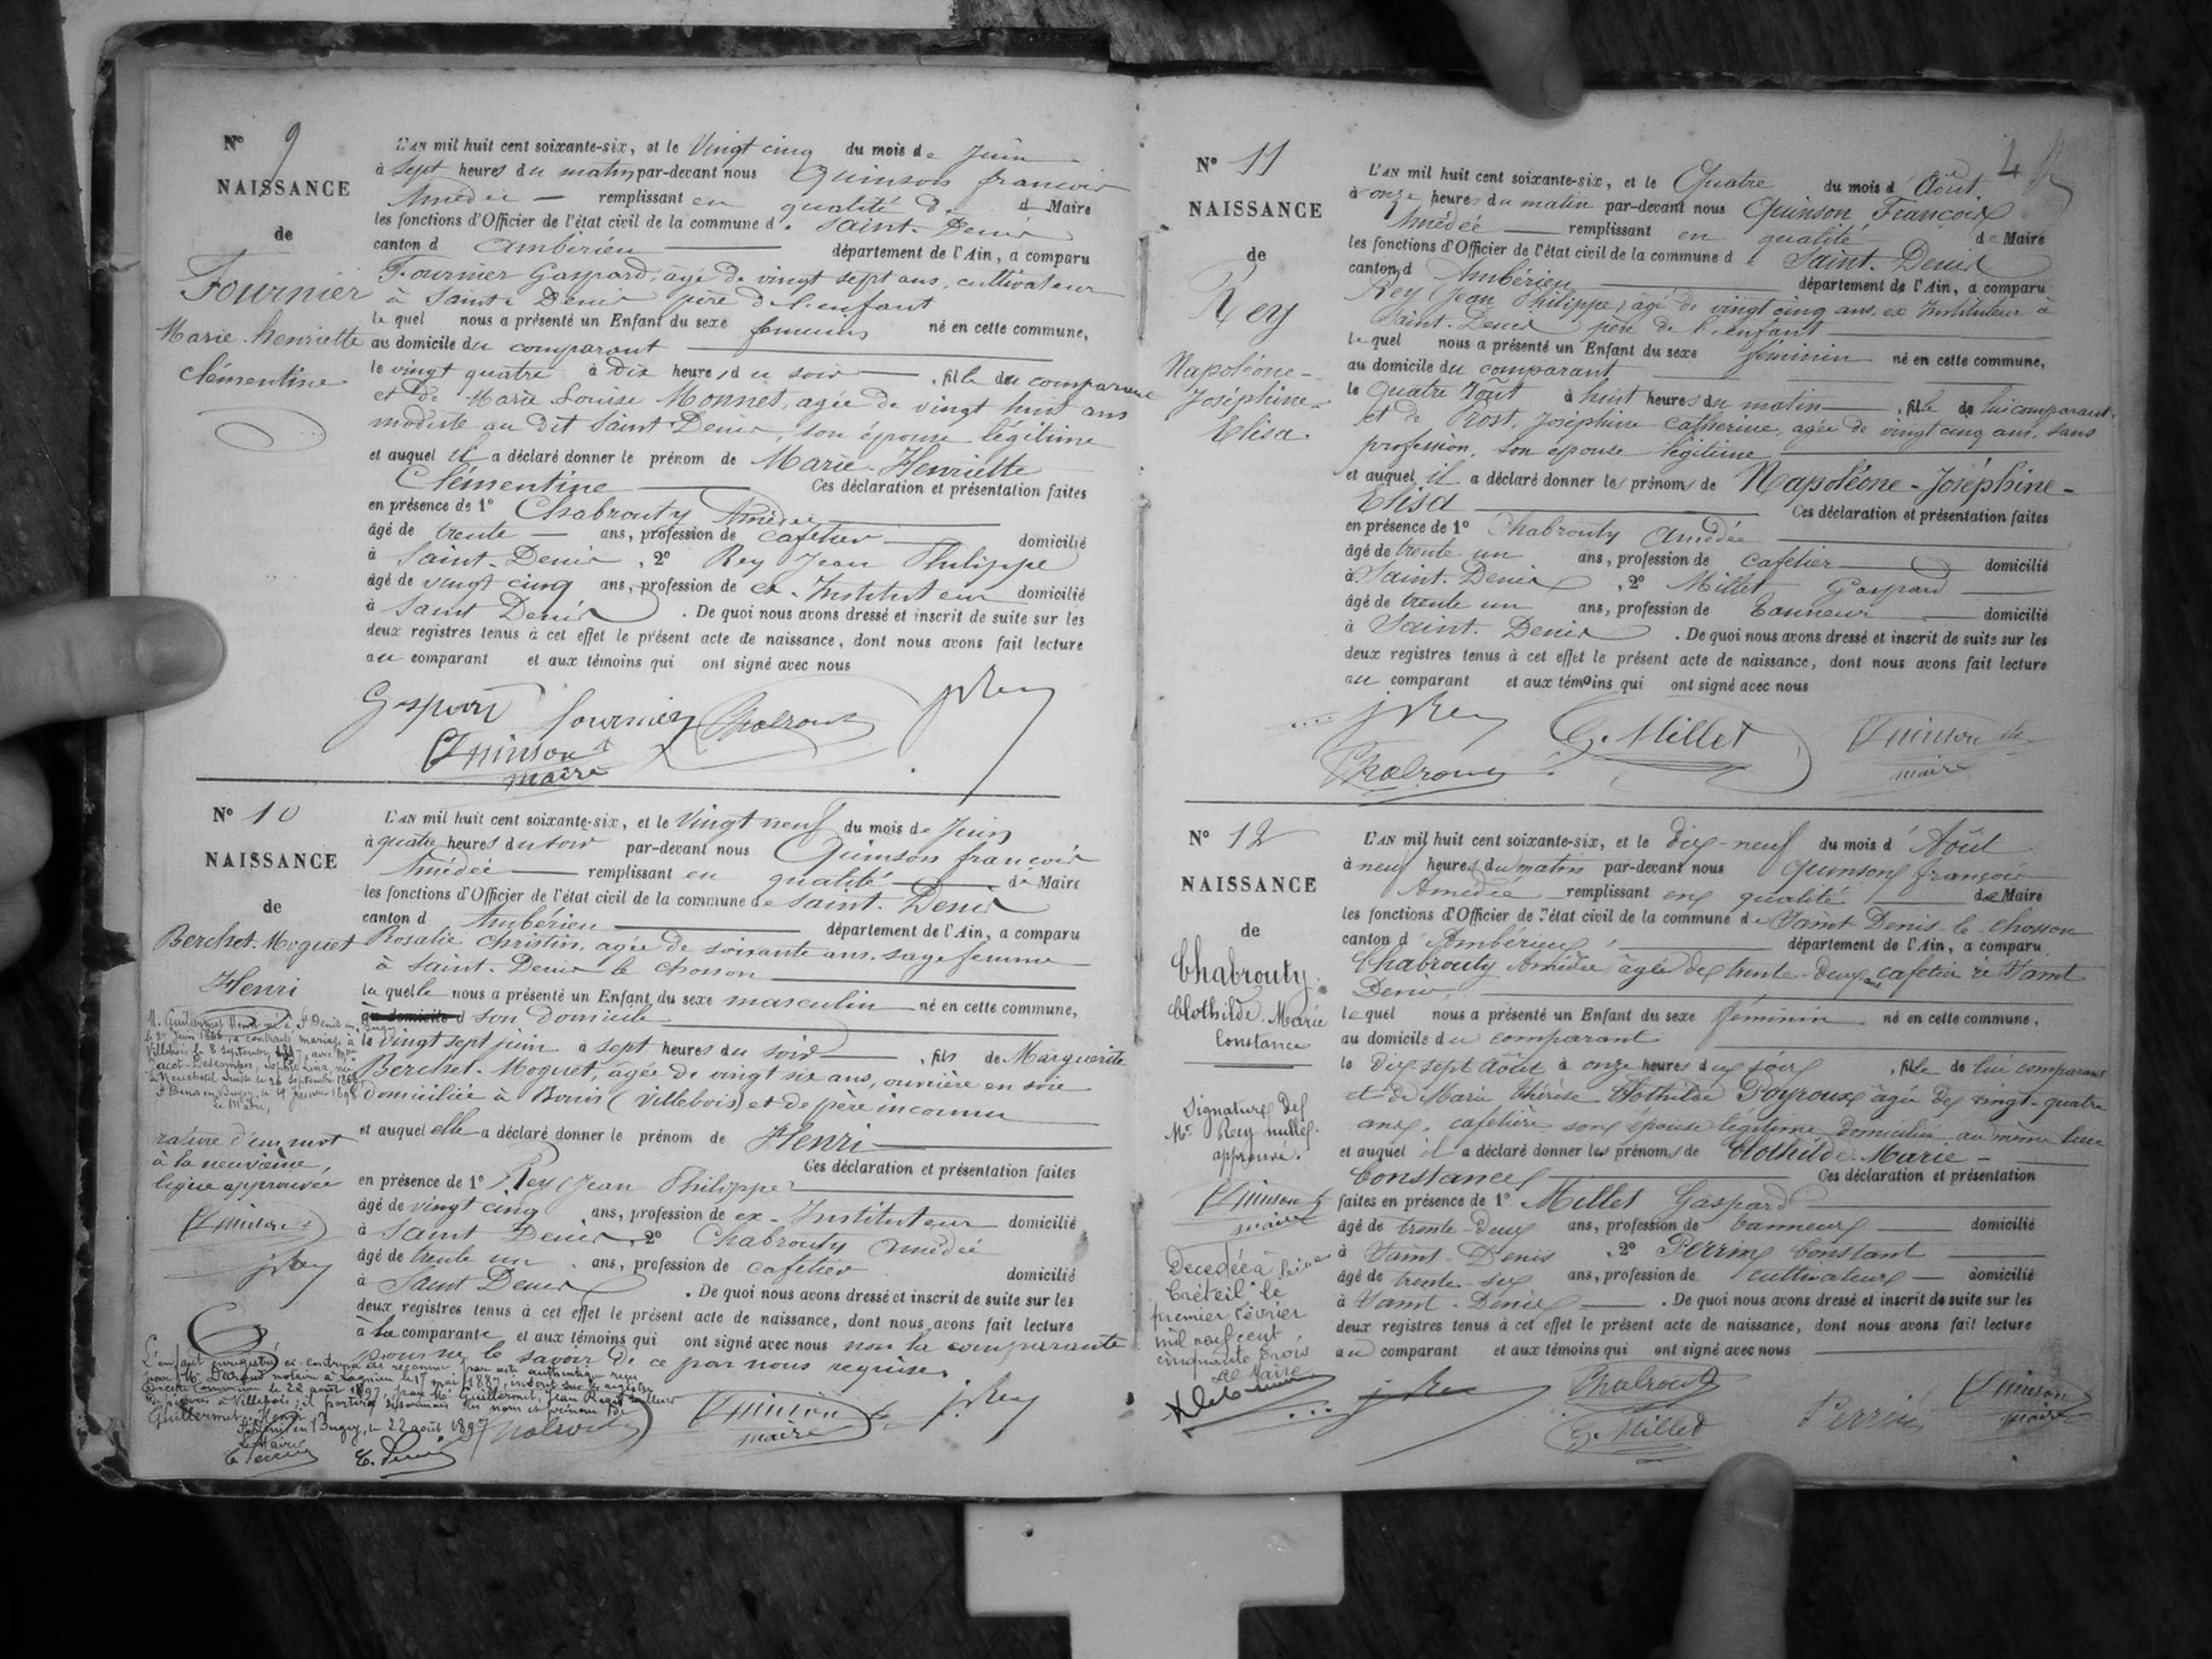 N° 9
NAISSANCE
de
Fournier
Marie-henriette
clémentine
L'AN mil huit cent soixante-six, et le Vingt cinq du mois de Juin
à Sept heures du matin par-devant nous Quinson françois
Amédée remplissant en qualité de d Maire
les fonctions d'Officier de l'état civil de la commune de Saint-Denis
canton d Ambérieu département de l'Ain, a comparu
Fournier Gaspard, âgé de vingt sept ans, cultivateur
à Saint Denis père de l'enfant
le quel nous a présenté un Enfant du sexe féminin né en cette commune,
au domicile du comparant
le vingt quatre à dix heures du soir, fille du comparant
et de Marie Louise Monnet, agée de vingt huit ans
modiste au dit Saint Denis, son épouse légitime
et auquel il a déclaré donner le prénom de Marie-Henriette
Clémentine Ces déclaration et présentation faites
en présence de 1° Chabrouty Amédée
âgé de trente ans, profession de cafetier domicilié
à Saint-Denis, 2° Rey Jean Philippe
âgé de vingt cinq ans, profession de ex-Instituteur domicilié
à Saint Denis. De quoi nous avons dressé et inscrit de suite sur les
deux registres tenus à cet effet le présent acte de naissance, dont nous avons fait lecture
au comparant et aux témoins qui ont signé avec nous
Gaspard fournier Chabrouty JRey
Quinson
maire
N° 10
NAISSANCE
de
Berchet-Moguet
Henri
M. Guillermet Henri né à St Denis en Bugey
le 27 Juin 1866, a contracté mariage à
Villebois le 8 septembre 1897, avec
Sophie Lina, née
à Neuchatel Suisse le 26 septembre 1868
St Denis en Bugey, le 4 janvier 1898
Le Maire,
rature d'un mot
à la neuvième,
ligne approuvée
Quinson
JRey
L'AN mil huit cent soixante-six, et le Vingt neuf du mois de Juin
à quatre heures du soir par-devant nous Quinson françois
Amédée remplissant en qualité de Maire
les fonctions d'Officier de l'état civil de la commune de Saint-Denis
canton d Ambérieu département de l'Ain, a comparu
Rosalie Christin, agée de soixante ans, sage femme
à Saint-Denis le chosson
la quelle nous a présenté un Enfant du sexe masculin né en cette commune,
à son domicile
le vingt sept juin à sept heures du soir, fils de Marguerite
Berchet-Moguet, agée de vingt six ans, ouvrière en soie
domiciliée à Bouis (Villebois) et de père inconnu
et auquel elle a déclaré donner le prénom de Henri
Ces déclaration et présentation faites
en présence de 1° Rey Jean Philippe
âgé de vingt cinq ans, profession de ex-Instituteur domicilié
à Saint Denis, 2° Chabrouty Amédée
âgé de trente un ans, profession de cafetier domicilié
à Saint Denis. De quoi nous avons dressé et inscrit de suite sur les
deux registres tenus à cet effet le présent acte de naissance, dont nous avons fait lecture
à la comparante et aux témoins qui ont signé avec nous non la comparante
pour ne le savoir de ce par nous requise.
L'enfant enregistré ci-contre a été reconnu par acte authentique reçu
par Me Diraud notaire à Lagnieu le 17 mai 1887, inscrit sur le registre
le 22 août 1897, par Mr Guillermet, Jean tailleur
de pierres à Villebois; il portera désormais les nom et prénom de
Guillermet Henri
St Denis en Bugey, le 22 août 1897
Le Maire
Chabrouty Quinson maire J. Rey
N° 11
NAISSANCE
de
Rey
Napoléone-
Joséphine-
Elisa.
4
L'AN mil huit cent soixante-six, et le Quatre du mois d'Août
à onze heures du matin par-devant nous Quinson François
Amédée remplissant en qualité de Maire
les fonctions d'Officier de l'état civil de la commune de Saint-Denis
canton d Ambérieu département de l'Ain, a comparu
Rey (Jean Philippe) âgé de vingt cinq ans, ex Instituteur à
Saint-Denis père de l'enfant
le quel nous a présenté un Enfant du sexe féminin né en cette commune,
au domicile du comparant
le Quatre Août à huit heures du matin, fille de lui comparant,
et de Prost, Joséphine Catherine, agée de vingt cinq ans, sans
profession, son épouse légitime
et auquel il a déclaré donner les prénoms de Napoléone-Joséphine-
Elisa Ces déclaration et présentation faites
en présence de 1° Chabrouty Amédée
âgé de trente un ans, profession de cafetier domicilié
à Saint-Denis, 2° Millet Gaspard
âgé de trente un ans, profession de tanneur domicilié
à Saint-Denis. De quoi nous avons dressé et inscrit de suite sur les
deux registres tenus à cet effet le présent acte de naissance, dont nous avons fait lecture
au comparant et aux témoins qui ont signé avec nous
JRey G. Millet Quinson
Chabrouty maire
N° 12
NAISSANCE
de
Chabrouty
Clothilde Marie
Constance
Signature de
Mr Rey nulle.
approuvé.
Quinson
maire
Décédée à
Créteil Seine le
premier février
mil neuf cent
cinquante trois
Le Maire
L'AN mil huit cent soixante-six, et le dix-neuf du mois d'Août
à neuf heures du matin par-devant nous Quinson françois
Amédée remplissant en qualité de Maire
les fonctions d'Officier de l'état civil de la commune de Saint Denis-le-chosson
canton d'Ambérieu département de l'Ain, a comparu
Chabrouty Amédée âgé de trente-deux ans cafetier à Saint
Denis,
le quel nous a présenté un Enfant du sexe féminin né en cette commune,
au domicile du comparant
le dix sept Août à onze heures du soir, fille de lui comparant
et de Marie Thérèse Clothilde Poyroux âgée de vingt-quatre
ans, cafetière son épouse légitime domiciliée au même lieu
et auquel il a déclaré donner les prénoms de Clothilde-Marie-
Constance Ces déclaration et présentation
faites en présence de 1° Millet Gaspard
âgé de trente-deux ans, profession de tanneur domicilié
à Saint-Denis, 2° Perrin Constant
âgé de trente-six ans, profession de cultivateur domicilié
à Saint-Denis. De quoi nous avons dressé et inscrit de suite sur les
deux registres tenus à cet effet le présent acte de naissance, dont nous avons fait lecture
au comparant et aux témoins qui ont signé avec nous
Chabrouty Quinson
G. Millet Perrin maire